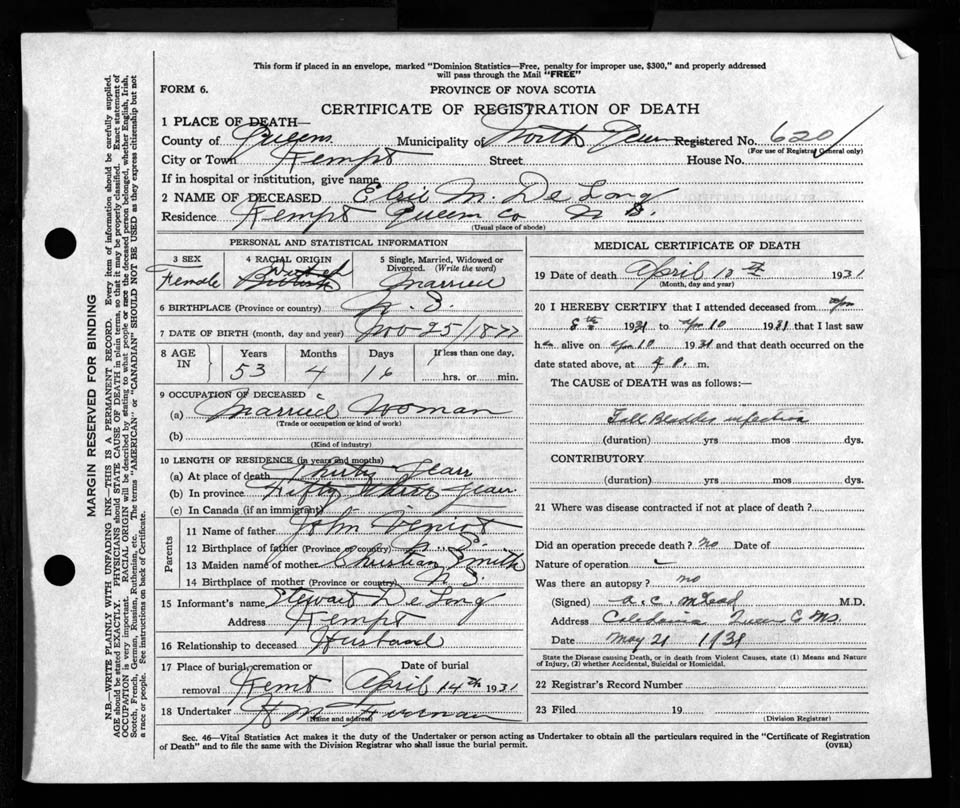 This form if placed in an envelope, marked "Dominion Statistics—Free, penalty for improper use, $300," and properly addressed
will pass through the Mail "FREE"
FORM 6.
PROVINCE OF NOVA SCOTIA
CERTIFICATE OF REGISTRATION OF DEATH
1 PLACE OF DEATH—
County of Queens Municipality of North Queen Registered No. 620
(For use of Registrar General only)
City or Town Kempt Street House No.
If in hospital or institution, give name
2 NAME OF DECEASED M. De Long
Residence Kempt Queens Co N S.
(Usual place of abode)
PERSONAL AND STATISTICAL INFORMATION
3 SEX
Female
4 RACIAL ORIGIN
5 Single, Married, Widowed or
Divorced. (Write the word)
Married
6 BIRTHPLACE (Province or country) N. S.
7 DATE OF BIRTH (month, day and year) Nov 25/1877
8 AGE IN
Years 53
Months 4
Days 16
If less than one day,
hrs. or min.
9 OCCUPATION OF DECEASED
(a) Married Woman
(Trade or occupation or kind of work)
(b)
(Kind of industry)
10 LENGTH OF RESIDENCE (in years and months)
(a) At place of death Thirty Years
(b) In province Fifty three years
(c) In Canada (if an immigrant)
Parents
11 Name of father John Veniot
12 Birthplace of father (Province or country) N. S.
13 Maiden name of mother Christian Smith
14 Birthplace of mother (Province or country) N S.
15 Informant's name Stewart De Long
Address Kempt
16 Relationship to deceased Husband
17 Place of burial, cremation or
removal Kempt
Date of burial
April 14th 1931
18 Undertaker H M Freeman
(Name and address)
MEDICAL CERTIFICATE OF DEATH
19 Date of death April 10th 1931
(Month, day and year)
20 I HEREBY CERTIFY that I attended deceased from Apr
8th 1931 to Apr 10 1931 that I last saw
her alive on Apr 10 1931 and that death occurred on the
date stated above, at 4 P. m.
The CAUSE OF DEATH was as follows:—
Gall Bladder infection
(duration) yrs mos dys.
CONTRIBUTORY
(duration) yrs mos dys.
21 Where was disease contracted if not at place of death ?
Did an operation precede death ? no Date of
Nature of operation
Was there an autopsy ? no
(Signed) A. C. M.D.
Address Caledonia Queens Co NS.
Date May 21 1931
State the Disease causing Death, or in death from Violent Causes, state (1) Means and Nature
of Injury, (2) whether Accidental, Suicidal or Homicidal.
22 Registrar's Record Number
23 Filed 19
(Division Registrar)
Sec. 46—Vital Statistics Act makes it the duty of the Undertaker or person acting as Undertaker to obtain all the particulars required in the "Certificate of Registration
of Death" and to file the same with the Division Registrar who shall issue the burial permit.
(OVER)
MARGIN RESERVED FOR BINDING
N.B.—WRITE PLAINLY WITH UNFADING INK—THIS IS A PERMANENT RECORD. Every item of information should be carefully supplied.
AGE should be stated EXACTLY. PHYSICIANS should STATE CAUSE OF DEATH in plain terms, so that it may be properly classified. Exact statement of
OCCUPATION is very important. RACIAL ORIGIN will be described by stating to what people or race the deceased person belonged, whether English, Irish,
Scotch, French, German, Russian, Ruthenian, etc. The terms "AMERICAN" or "CANADIAN" SHOULD NOT BE USED as they express citizenship but not
a race or people. See instructions on back of Certificate.